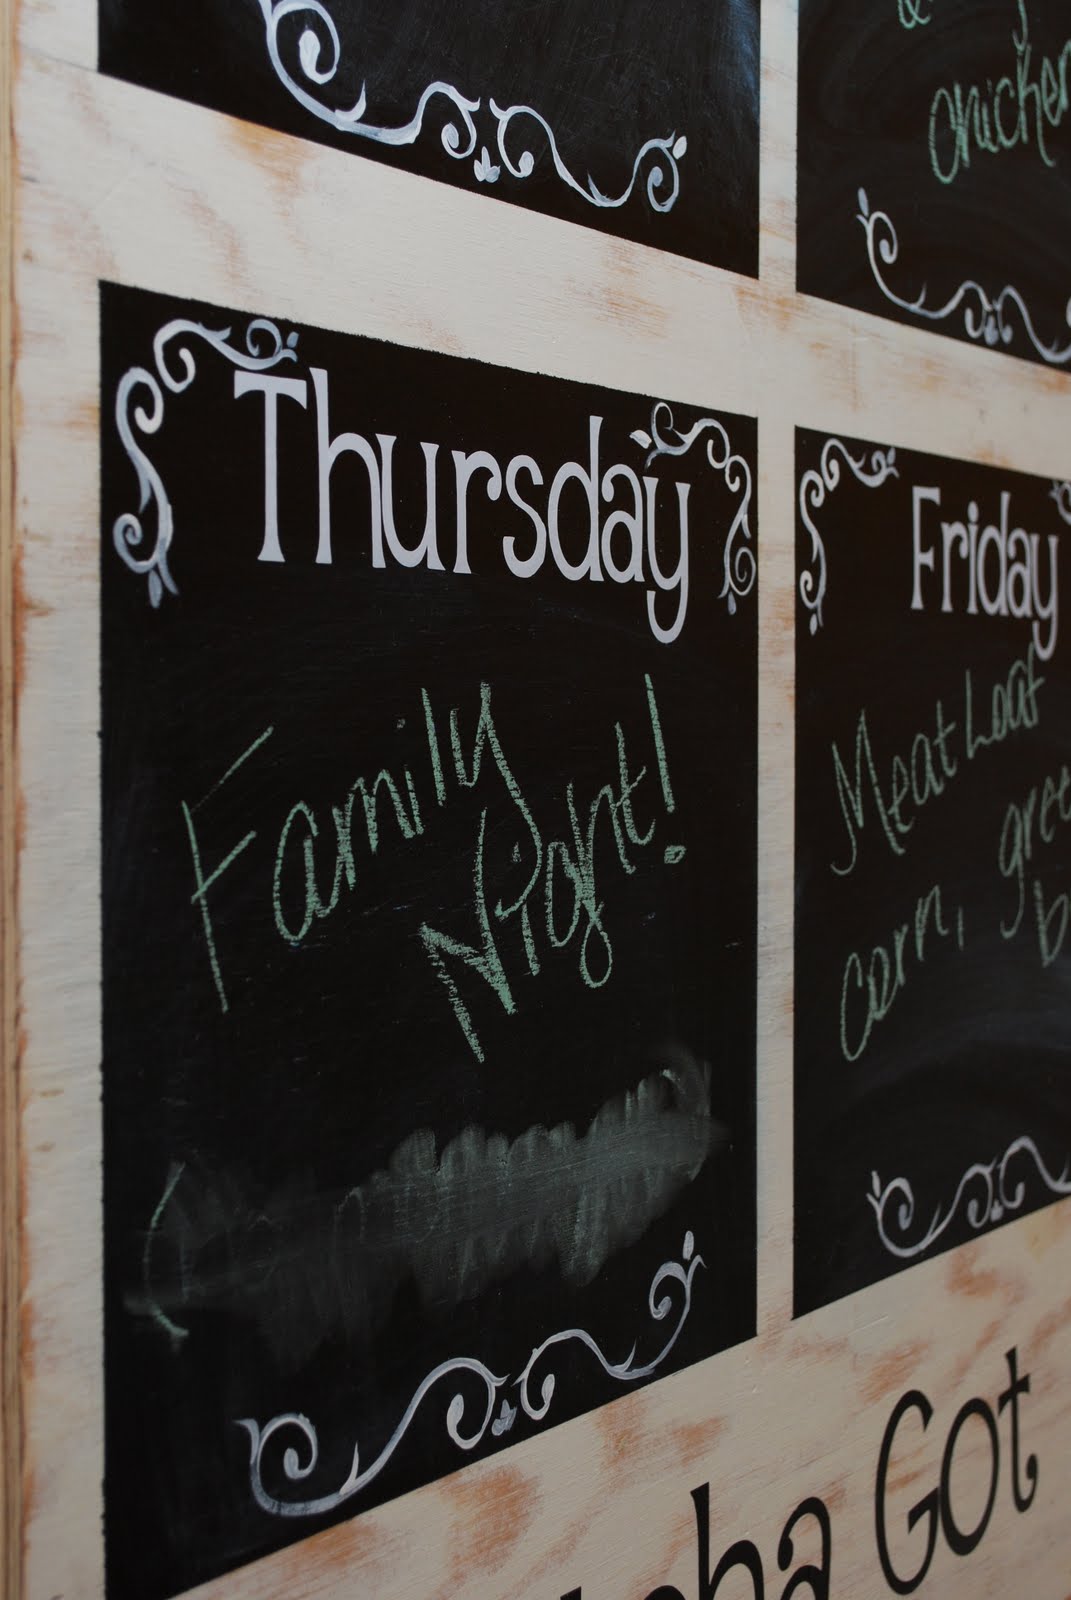 chicken
Thursday
Family
Night!
Friday
Meat Loaf
corn,
Got